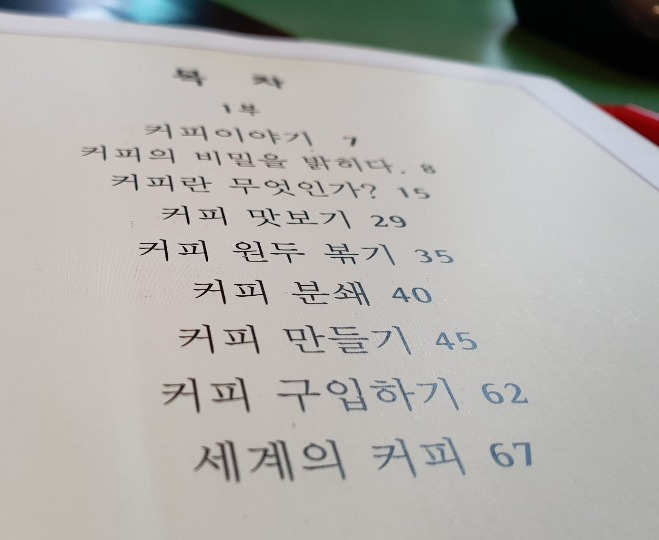 목 차
1부
커피이야기 7
커피의 비밀을 밝히다. 8
커피란 무엇인가? 15
커피 맛보기 29
커피 원두 볶기 35
커피 분쇄 40
커피 만들기 45
커피 구입하기 62
세계의 커피 67